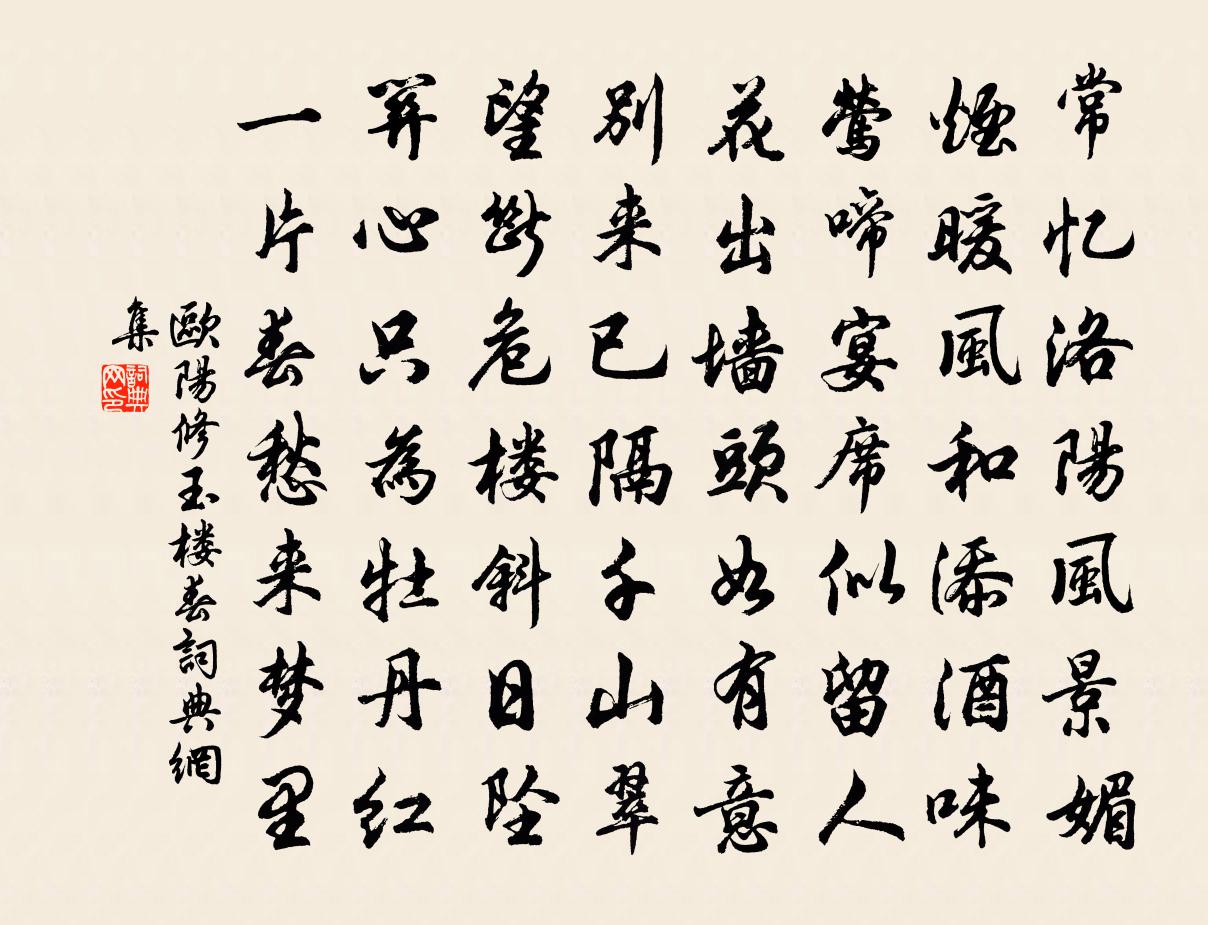 常忆洛陽風景媚
煙暖風和添酒味
莺啼宴席似留人
花出墙頭如有意
别来已隔千山翠
望断危楼斜日坠
関心只為牡丹红
一片春愁来梦里
歐陽修玉楼春詞典網
集
詞典
网印